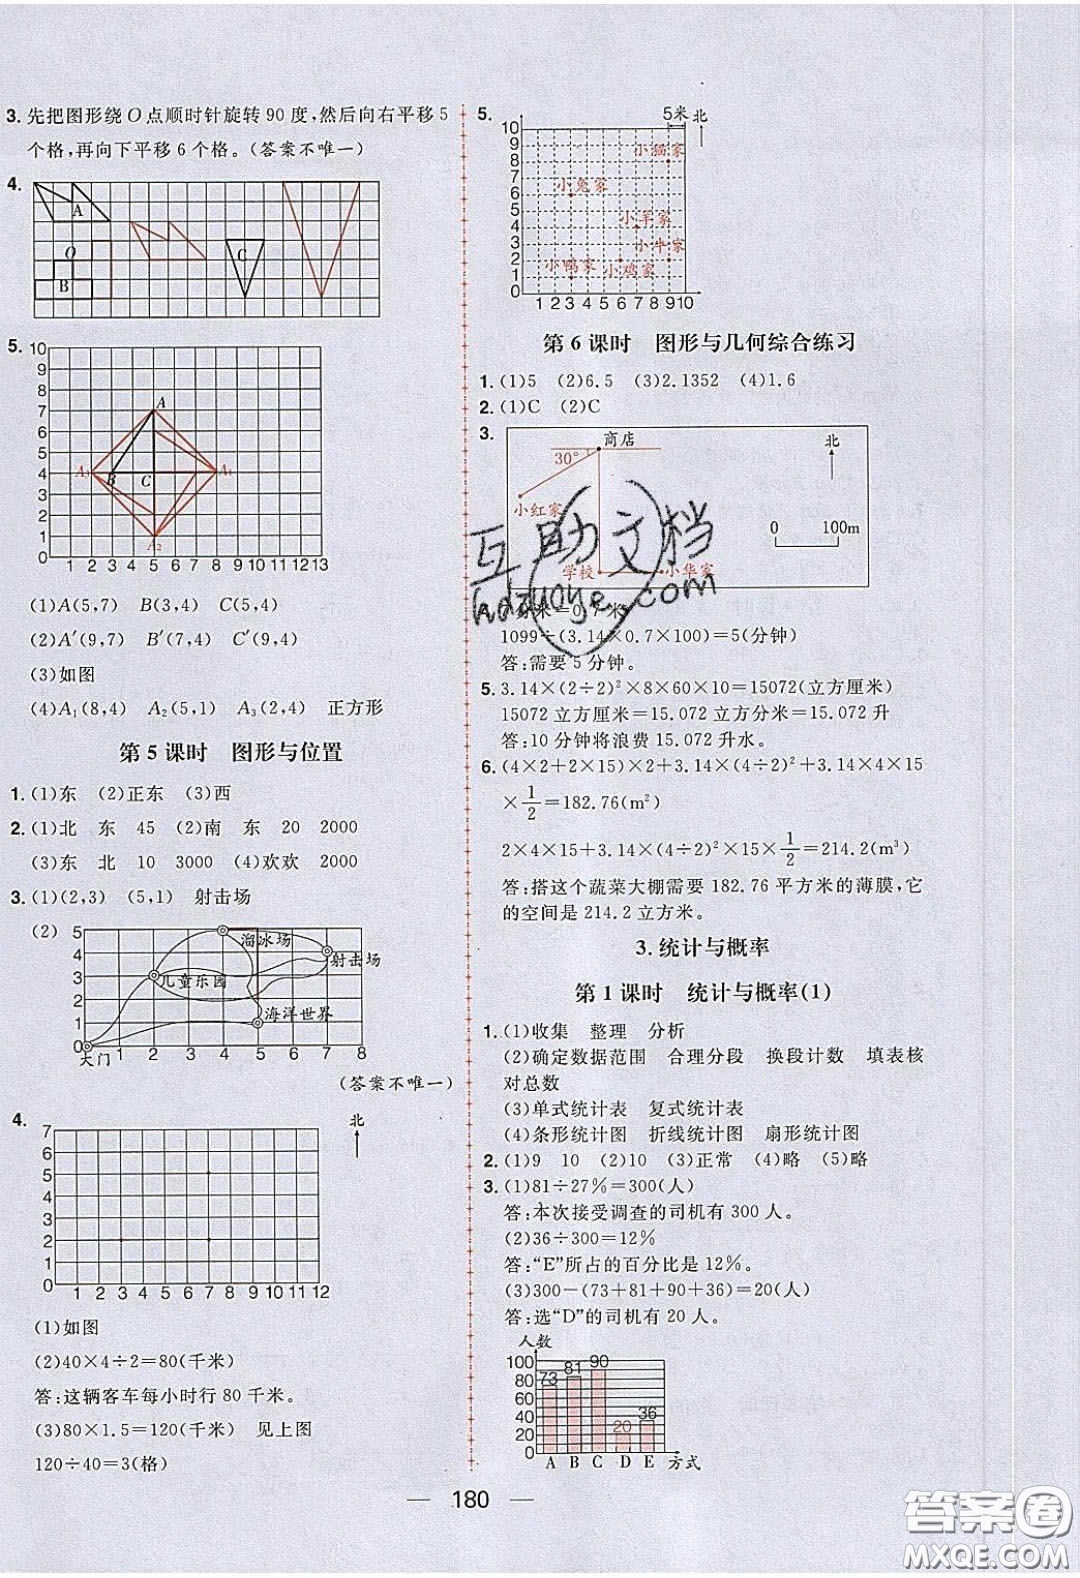 3. 先把图形绕O点顺时针旋转90度,然后向右平移5
个格,再向下平移6个格。(答案不唯一)
4.
A
O
B
C
5.
10
9
8
7
6
5
4
3
2
1
0
A
A₃
B
C
A₁
A₂
1 2 3 4 5 6 7 8 9 10 11 12 13
(1)A(5,7) B(3,4) C(5,4)
(2)A′(9,7) B′(7,4) C′(9,4)
(3)如图
(4)A₁(8,4) A₂(5,1) A₃(2,4) 正方形
第5课时 图形与位置
1. (1)东 (2)正东 (3)西
2. (1)北 东 45 (2)南 东 20 2000
(3)东 北 10 3000 (4)欢欢 2000
3. (1)(2,3) (5,1) 射击场
(2)
5
4
3
2
1
0
溜冰场
射击场
儿童乐园
海洋世界
大门
1 2 3 4 5 6 7 8
(答案不唯一)
4.
北
7
6
5
4
3
2
1
0
1 2 3 4 5 6 7 8 9 10 11 12
(1)如图
(2)40×4÷2=80(千米)
答:这辆客车每小时行80千米。
(3)80×1.5=120(千米) 见上图
120÷40=3(格)
5.
5米 北
10
9
8
7
6
5
4
3
2
1
0
小猫家
小兔家
小羊家
小牛家
小鸭家
小鸡家
1 2 3 4 5 6 7 8 9 10
第6课时 图形与几何综合练习
1. (1)5 (2)6.5 (3)2.1352 (4)1.6
2. (1)C (2)C
3.
商店
北
30°
小红家
0 100m
学校
小华家
互助文档
hdzuoye.com
米=0.7米
1099÷(3.14×0.7×100)=5(分钟)
答:需要5分钟。
5. 3.14×(2÷2)²×8×60×10=15072(立方厘米)
15072立方厘米=15.072立方分米=15.072升
答:10分钟将浪费15.072升水。
6. (4×2+2×15)×2+3.14×(4÷2)²+3.14×4×15
×1/2=182.76(m²)
2×4×15+3.14×(4÷2)²×15×1/2=214.2(m³)
答:搭这个蔬菜大棚需要182.76平方米的薄膜,它
的空间是214.2立方米。
3.统计与概率
第1课时 统计与概率(1)
1. (1)收集 整理 分析
(2)确定数据范围 合理分段 换段计数 填表核
对总数
(3)单式统计表 复式统计表
(4)条形统计图 折线统计图 扇形统计图
2. (1)9 10 (2)10 (3)正常 (4)略 (5)略
3. (1)81÷27%=300(人)
答:本次接受调查的司机有300人。
(2)36÷300=12%
答:“E”所占的百分比是12%。
(3)300-(73+81+90+36)=20(人)
答:选“D”的司机有20人。
人数
100
90
80
70
60
50
40
30
20
10
0
73
81
90
20
36
A B C D E 方式
180
答案圈
MXQE.COM